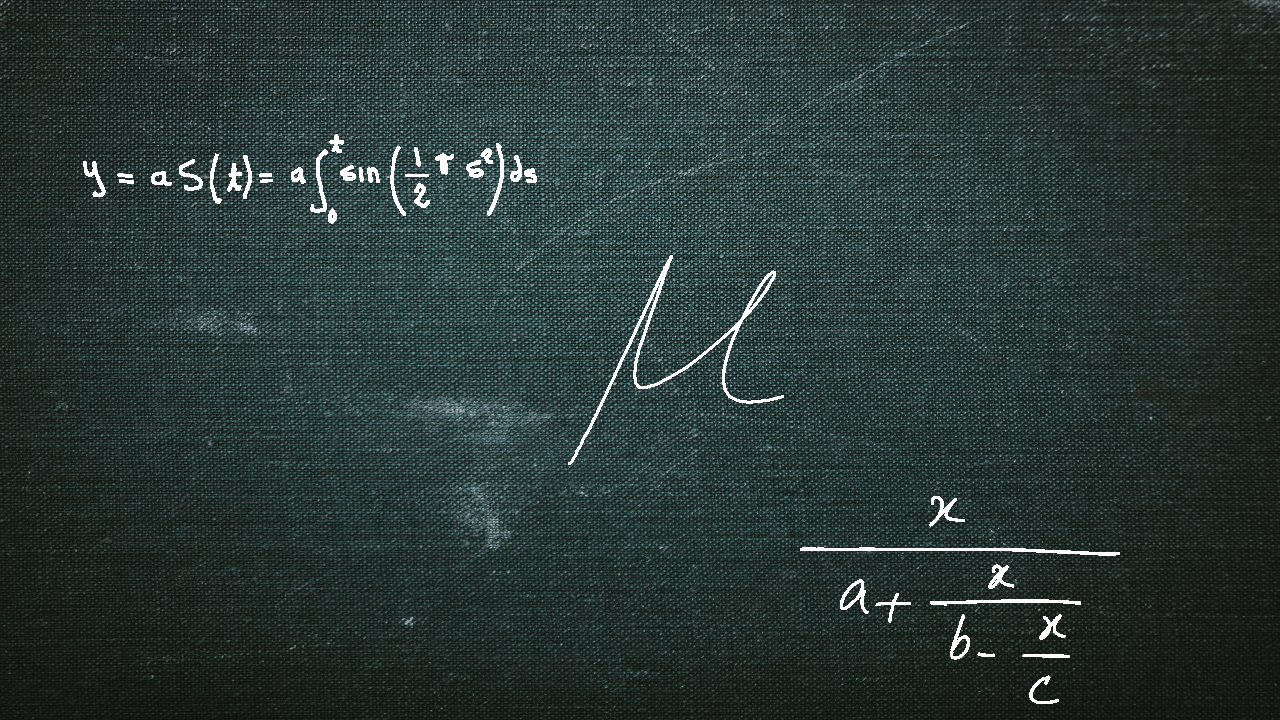 y = a S(t) = a ∫₀ᵗ sin(½ π s²) ds
μ
x
a + x
b - x
c